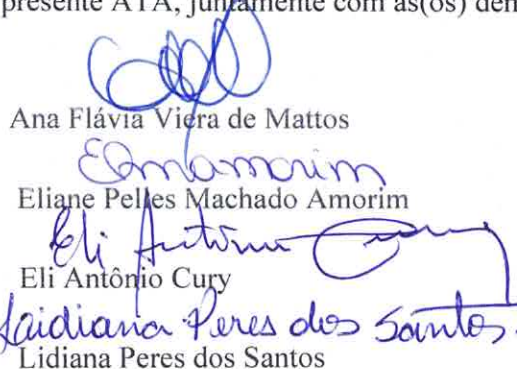 presente ATA, juntamente com as(os) dem
Ana Flávia Viera de Mattos
Emamorim
Eliane Pelles Machado Amorim
Eli Antônio Cury
Eli Antônio Cury
Laidiana Peres dos Santos.
Lidiana Peres dos Santos